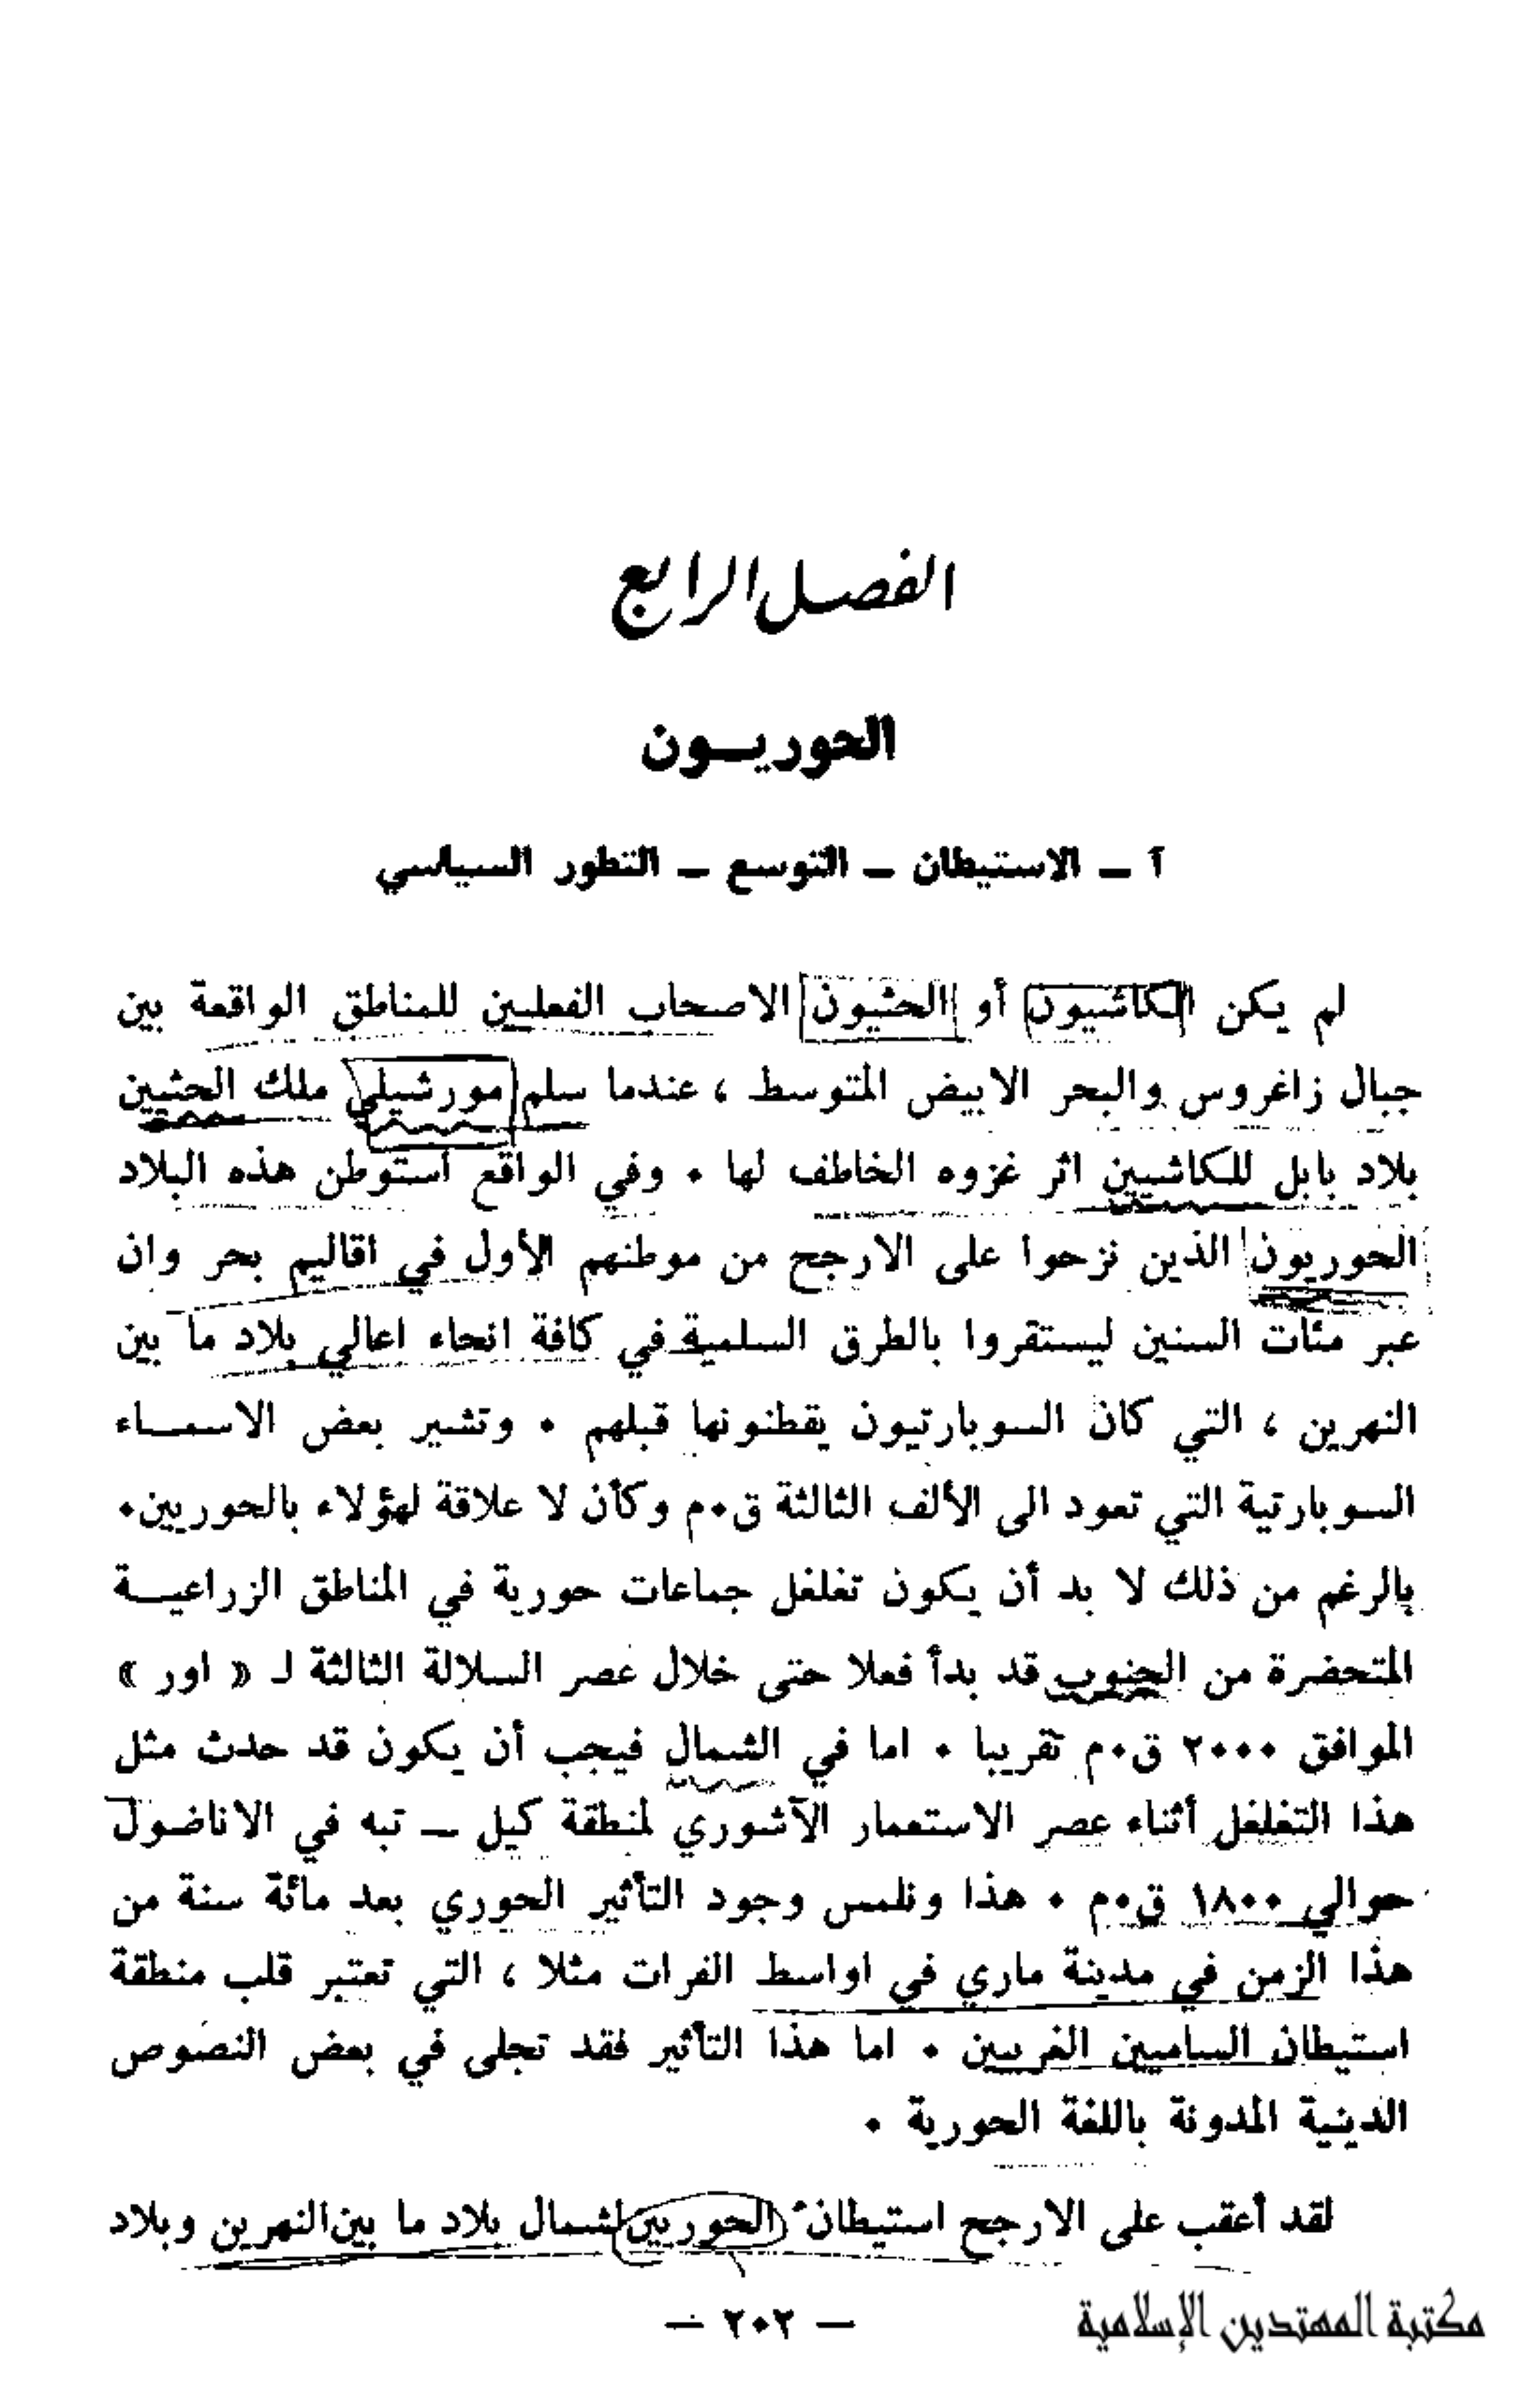 الفصل الرابع
الحوريـون
آ ــ الاستيطان ــ التوسع ــ التطور السياسي
لم يكن الكاشيون أو الحثيون الاصحاب الفعليين للمناطق الواقعة بين
جبال زاغروس والبحر الابيض المتوسط ، عندما سلم مورشيلي ملك الحثيين
بلاد بابل للكاشيين اثر غزوه الخاطف لها ٠ وفي الواقع استوطن هذه البلاد
الحوريون الذين نزحوا على الارجح من موطنهم الأول في اقاليم بحر وان
عبر مئات السنين ليستقروا بالطرق السلمية في كافة انحاء اعالي بلاد ما بين
النهرين ، التي كان السوبارتيون يقطنونها قبلهم ٠ وتشير بعض الاسمـاء
السوبارتية التي تعود الى الألف الثالثة ق٠م وكأن لا علاقة لهؤلاء بالحوريين٠
بالرغم من ذلك لا بد أن يكون تغلغل جماعات حورية في المناطق الزراعيـة
المتحضرة من الجنوب قد بدأ فعلا حتى خلال عصر السلالة الثالثة لـ « اور »
الموافق ٢٠٠٠ ق٠م تقريبا ٠ اما في الشمال فيجب أن يكون قد حدث مثل
هذا التغلغل أثناء عصر الاستعمار الآشوري لمنطقة كيل ــ تبه في الاناضول
حوالي ١٨٠٠ ق٠م ٠ هذا ونلمس وجود التأثير الحوري بعد مائة سنة من
هذا الزمن في مدينة ماري في اواسط الفرات مثلا ، التي تعتبر قلب منطقة
استيطان الساميين الغربيين ٠ اما هذا التأثير فقد تجلى في بعض النصوص
الدينية المدونة باللغة الحورية ٠
لقد أعقب على الارجح استيطان الحوريين لشمال بلاد ما بين النهرين وبلاد
— ٢٠٢ —
مكتبة المهتدين الإسلامية